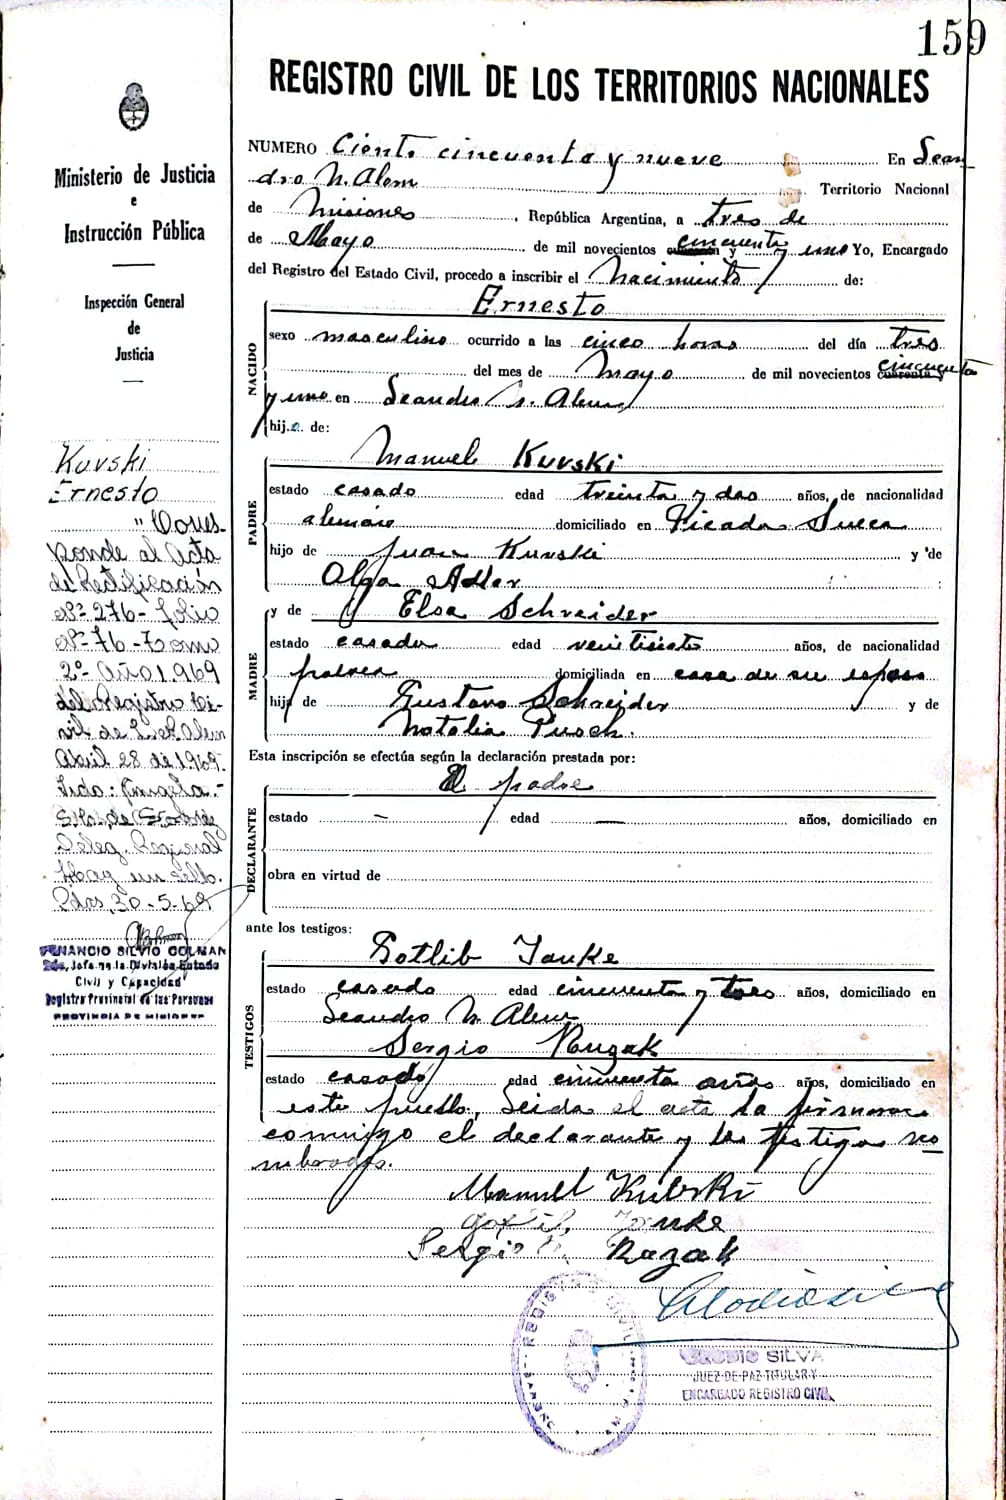 159
REGISTRO CIVIL DE LOS TERRITORIOS NACIONALES
Ministerio de Justicia
e
Instrucción Pública
Inspección General
de
Justicia
Kurski
Ernesto
" Corres-
ponde al Acta
de Rectificación
nº 276 - folio
nº 76 - Tomo
2º Año 1969
del Registro Ci-
vil de L. N. Alem
Abril 28 de 1969.
Deleg. Regional
Hay un sello.
Pdas, 30-5-69
VENANCIO SILVIO COLMAN
2do. Jefe de la División Estado
Civil y Capacidad
Registro Provincial de las Personas
PROVINCIA DE MISIONES
NUMERO Ciento cincuenta y nueve En Lean
dro N. Alem Territorio Nacional
de Misiones, República Argentina, a tres de
de Mayo de mil novecientos cincuenta y uno Yo, Encargado
del Registro del Estado Civil, procedo a inscribir el Nacimiento de:
NACIDO
Ernesto
sexo masculino ocurrido a las cinco horas del día tres
del mes de Mayo de mil novecientos cuarenta y cincuenta
y uno en Leandro N. Alem
hijo de:
PADRE
Manuel Kurski
estado casado edad treinta y dos años, de nacionalidad
alemán domiciliado en Picada Sueca
hijo de Juan Kurski y de
Olga Adler
MADRE
y de Elsa Schreider
estado casada edad veintisiete años, de nacionalidad
polaca domiciliada en casa de su esposo
hija de Gustavo Schreider y de
Natalia Pusch.
Esta inscripción se efectúa según la declaración prestada por:
DECLARANTE
El padre
estado - edad — años, domiciliado en
obra en virtud de
ante los testigos:
TESTIGOS
Gotlib Janke
estado casado edad cincuenta y tres años, domiciliado en
Leandro N. Alem
Sergio Ruzak
estado casado edad cincuenta años años, domiciliado en
este pueblo, Leida el acta la firmaron
conmigo el declarante y los testigos no_
mbrados.
Manuel Kurski
Janke
Sergio Razak
REGISTRO CIVIL
CLODIO SILVA
JUEZ DE PAZ TITULAR Y
ENCARGADO REGISTRO CIVIL